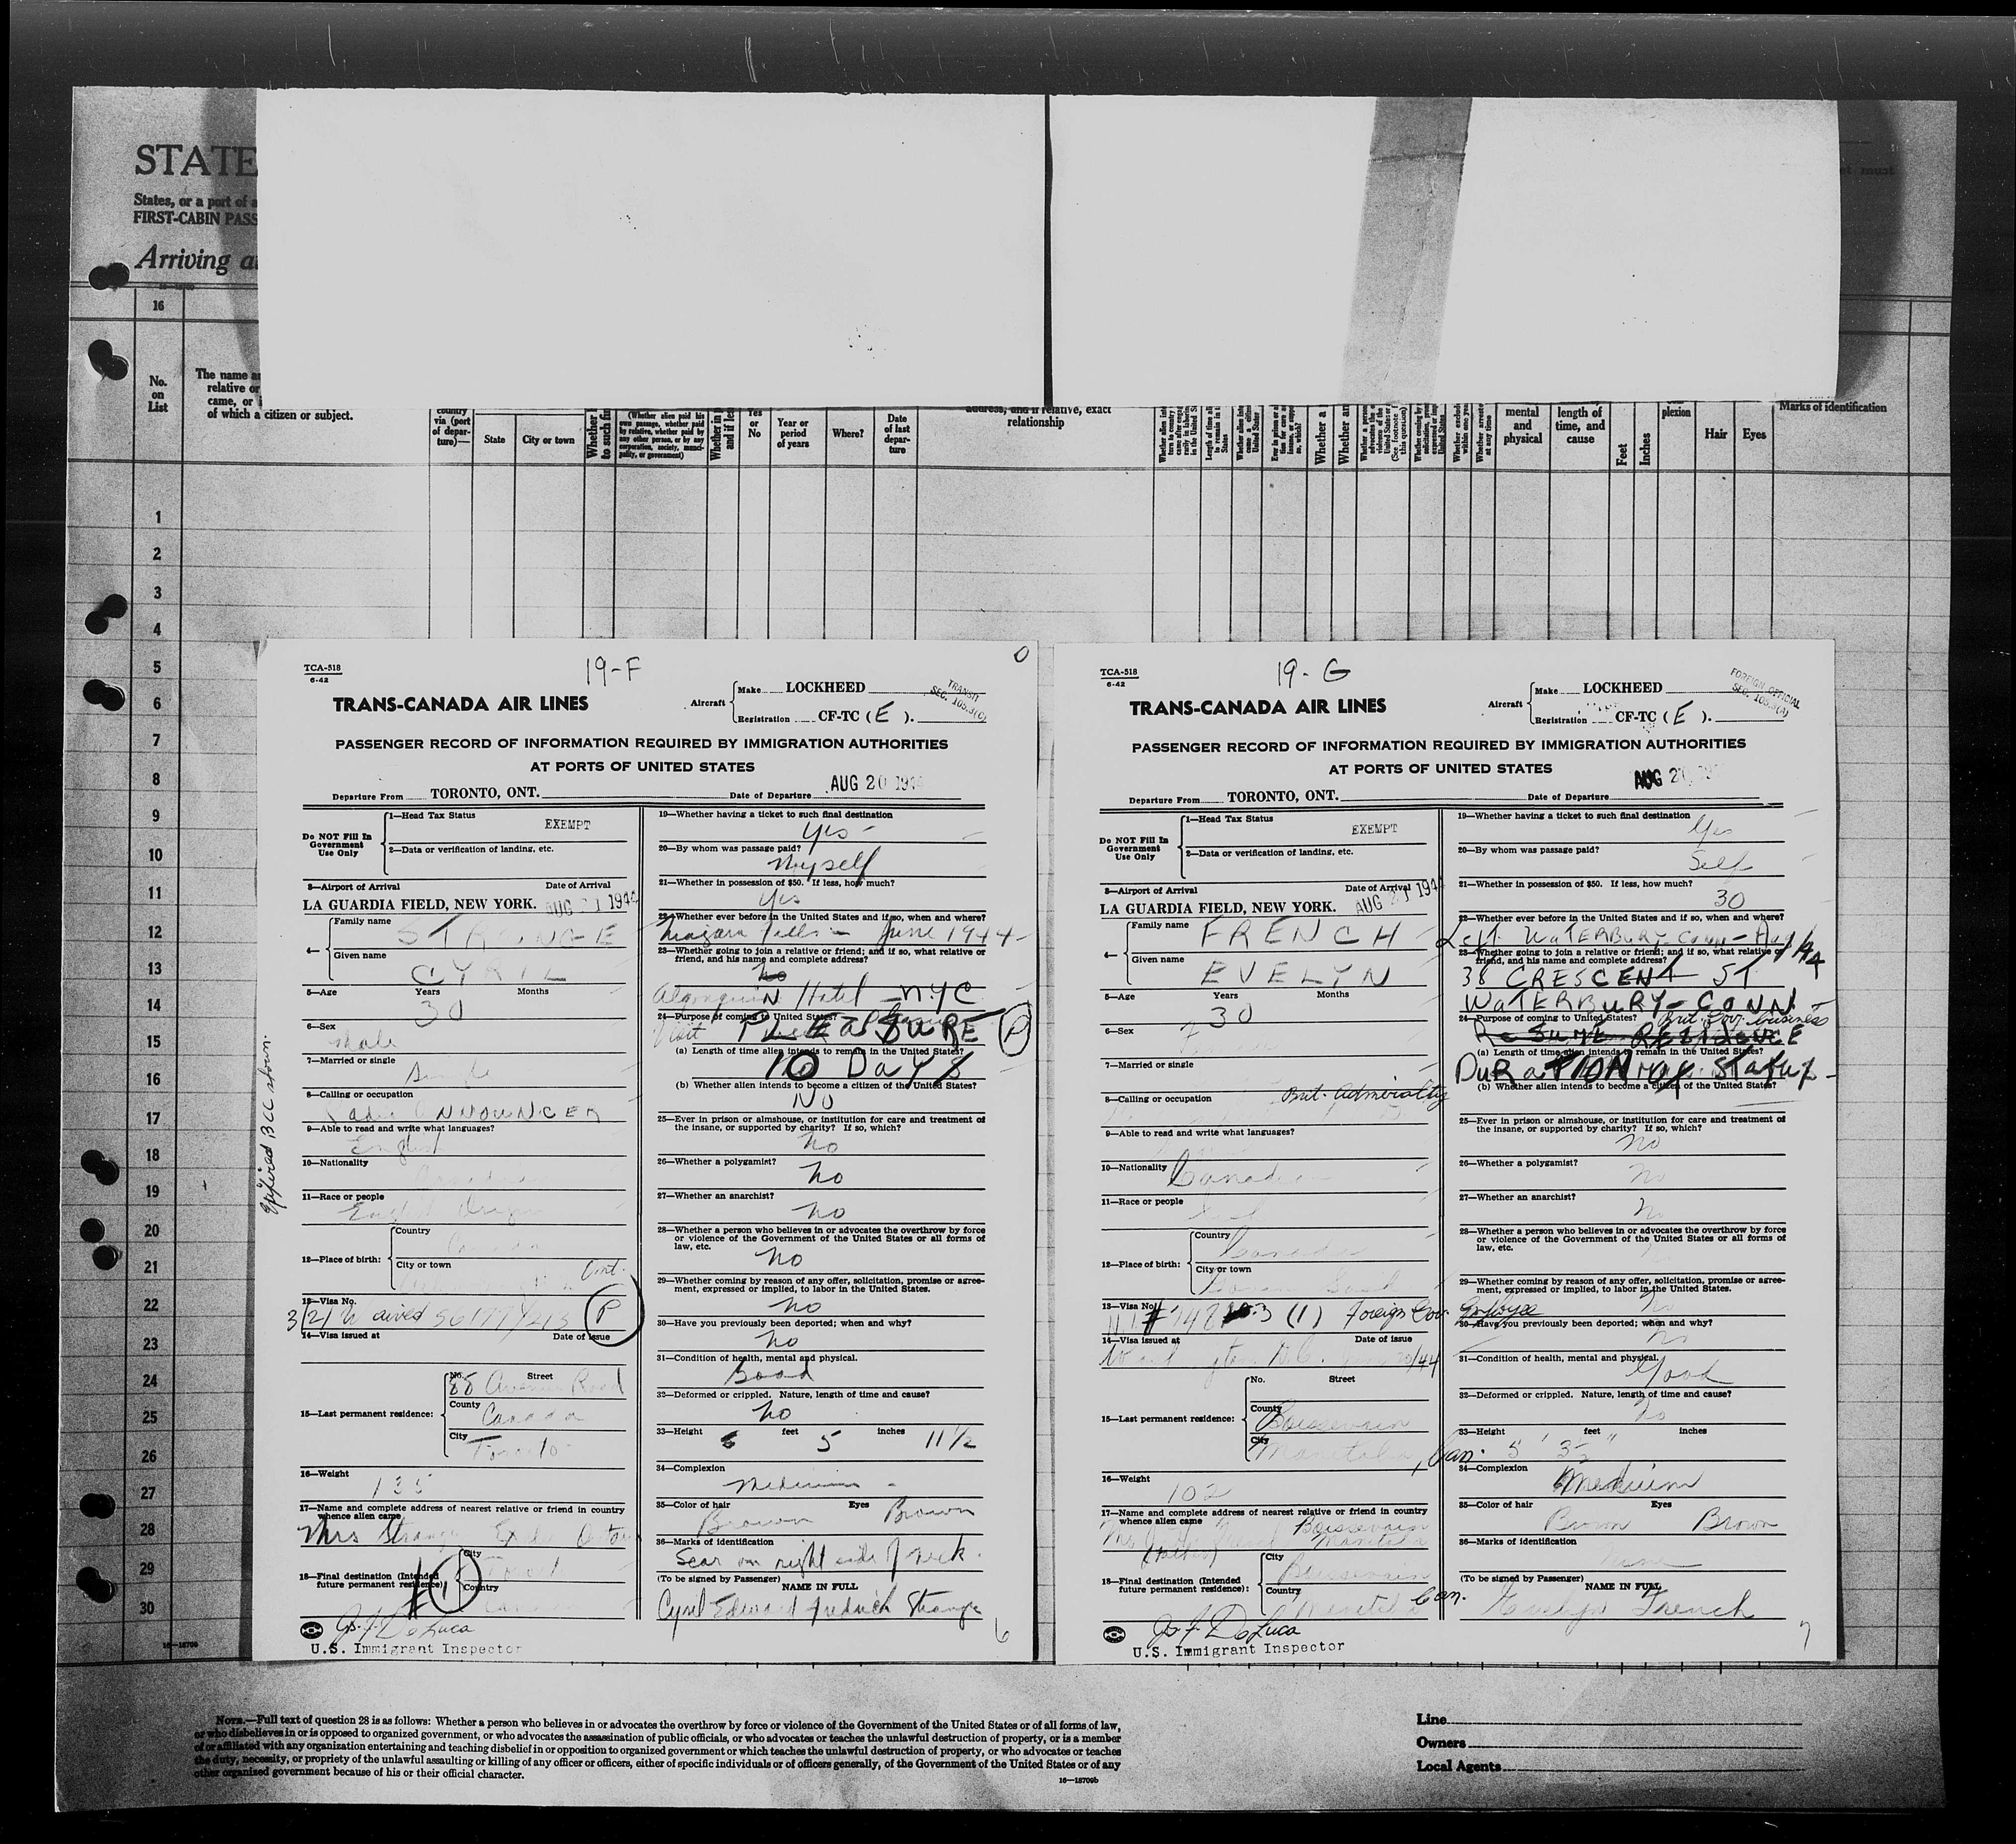 STATE
States, or a port of a
FIRST-CABIN PASS
Arriving a
16
No.
on
List
The name a
relative or
came, or
of which a citizen or subject.
country
via (port
of depar-
ture)—
State
City or town
Whether
to such fi
(Whether alien paid his
own passage, whether paid
by relative, whether paid by
any other person, or by any
corporation, society, munic-
ipality, or government)
Whether in
and if les
Yes
or
No
Year or
period
of years
Where?
Date
of last
depar-
ture
address, and if relative, exact
relationship
Whether a
Whether an
mental
and
physical
length of
time, and
cause
Feet
Inches
plexion
Hair
Eyes
Marks of identification
et must
1
2
3
4
5
6
7
8
9
10
11
12
13
14
15
16
17
18
19
20
21
22
23
24
25
26
27
28
29
30
16—18709
Expired BCC shown.
TCA-518
6-42
19-F
0
TRANS-CANADA AIR LINES
Aircraft
Make LOCKHEED
Registration CF-TC ( E ).
TRANSIT
SEC. 105.3(C)
PASSENGER RECORD OF INFORMATION REQUIRED BY IMMIGRATION AUTHORITIES
AT PORTS OF UNITED STATES
Departure From TORONTO, ONT. Date of Departure AUG 20 194
Do NOT Fill In
Government
Use Only
1—Head Tax Status
EXEMPT
2—Data or verification of landing, etc.
3—Airport of Arrival Date of Arrival
LA GUARDIA FIELD, NEW YORK. AUG 1944
4—
Family name STRANGE
Given name CYRIL
5—Age Years Months
30
6—Sex
Male
7—Married or single
Single
8—Calling or occupation
Radio ANNOUNCER
9—Able to read and write what languages?
English
10—Nationality
Canadian
11—Race or people
English Origin
12—Place of birth:
Country
Canada
City or town
Ont.
13—Visa No.
P
14—Visa issued at Date of issue
15—Last permanent residence:
No. Street
88 Avenue Road
County
Canada
City
Toronto
16—Weight
135
17—Name and complete address of nearest relative or friend in country
whence alien came
Mrs Strange
18—Final destination (Intended
future permanent residence)
City
Country
#1
U.S. Immigrant Inspector
19—Whether having a ticket to such final destination
Yes -
20—By whom was passage paid?
Myself
21—Whether in possession of $50. If less, how much?
Yes
22—Whether ever before in the United States and if so, when and where?
Niagara Falls – June 1944
23—Whether going to join a relative or friend; and if so, what relative or
friend, and his name and complete address?
No
Algonquin Hotel – NYC
24—Purpose of coming to United States?
Visit PLEASURE P
(a) Length of time alien intends to remain in the United States?
10 DAYS
(b) Whether alien intends to become a citizen of the United States?
No
25—Ever in prison or almshouse, or institution for care and treatment of
the insane, or supported by charity? If so, which?
No
26—Whether a polygamist?
No
27—Whether an anarchist?
No
28—Whether a person who believes in or advocates the overthrow by force
or violence of the Government of the United States or all forms of
law, etc.
No
29—Whether coming by reason of any offer, solicitation, promise or agree-
ment, expressed or implied, to labor in the United States.
No
30—Have you previously been deported; when and why?
No
31—Condition of health, mental and physical.
Good
32—Deformed or crippled. Nature, length of time and cause?
No
33—Height feet 5 inches 11 1/2
34—Complexion
Medium
35—Color of hair Eyes
Brown Brown
36—Marks of identification
Scar on right side of neck.
(To be signed by Passenger)
NAME IN FULL
Cyril Edward Fredrick Strange
6
TCA-518
6-42
19-G
TRANS-CANADA AIR LINES
Aircraft
Make LOCKHEED
Registration CF-TC ( E ).
FOREIGN OFFICIAL
SEC. 105.3(A)
PASSENGER RECORD OF INFORMATION REQUIRED BY IMMIGRATION AUTHORITIES
AT PORTS OF UNITED STATES
Departure From TORONTO, ONT. Date of Departure AUG 20 19
Do NOT Fill In
Government
Use Only
1—Head Tax Status
EXEMPT
2—Data or verification of landing, etc.
3—Airport of Arrival Date of Arrival
LA GUARDIA FIELD, NEW YORK. AUG 1944
4—
Family name FRENCH
Given name EVELYN
5—Age Years Months
30
6—Sex
7—Married or single
8—Calling or occupation Brit. Admiralty
9—Able to read and write what languages?
10—Nationality
Canadian
11—Race or people
12—Place of birth:
Country
Canada
City or town
13—Visa No.
(1) Foreign Gov. Employee
14—Visa issued at Date of issue
15—Last permanent residence:
No. Street
County
Boissevain
City
Manitoba, Can.
16—Weight
102
17—Name and complete address of nearest relative or friend in country
whence alien came
Boissevain
Manitoba
(father)
18—Final destination (Intended
future permanent residence):
City
Boissevain
Country
Manitoba Can.
U.S. Immigrant Inspector
19—Whether having a ticket to such final destination
Yes
20—By whom was passage paid?
Self
21—Whether in possession of $50. If less, how much?
30
22—Whether ever before in the United States and if so, when and where?
Left WATERBURY CONN – Aug
23—Whether going to join a relative or friend; and if so, what relative or
friend, and his name and complete address?
38 CRESCENT ST
WATERBURY – CONN
24—Purpose of coming to United States? Brit. Gov. business
RESUME RESIDENCE
(a) Length of time alien intends to remain in the United States?
DURATION of Status
(b) Whether alien intends to become a citizen of the United States?
25—Ever in prison or almshouse, or institution for care and treatment of
the insane, or supported by charity? If so, which?
No
26—Whether a polygamist?
No
27—Whether an anarchist?
No
28—Whether a person who believes in or advocates the overthrow by force
or violence of the Government of the United States or all forms of
law, etc.
29—Whether coming by reason of any offer, solicitation, promise or agree-
ment, expressed or implied, to labor in the United States.
No
30—Have you previously been deported; when and why?
No
31—Condition of health, mental and physical.
Good
32—Deformed or crippled. Nature, length of time and cause?
No
33—Height feet inches
34—Complexion
Medium
35—Color of hair Eyes
Brown Brown
36—Marks of identification
None
(To be signed by Passenger)
NAME IN FULL
Evelyn French
7
NOTE.—Full text of question 28 is as follows: Whether a person who believes in or advocates the overthrow by force or violence of the Government of the United States or of all forms of law,
or who disbelieves in or is opposed to organized government, or who advocates the assassination of public officials, or who advocates or teaches the unlawful destruction of property, or is a member
of or affiliated with any organization entertaining and teaching disbelief in or opposition to organized government or which teaches the unlawful destruction of property, or who advocates or teaches
the duty, necessity, or propriety of the unlawful assaulting or killing of any officer or officers, either of specific individuals or of officers generally, of the Government of the United States or of any
other organized government because of his or their official character.
16—18709b
Line
Owners
Local Agents